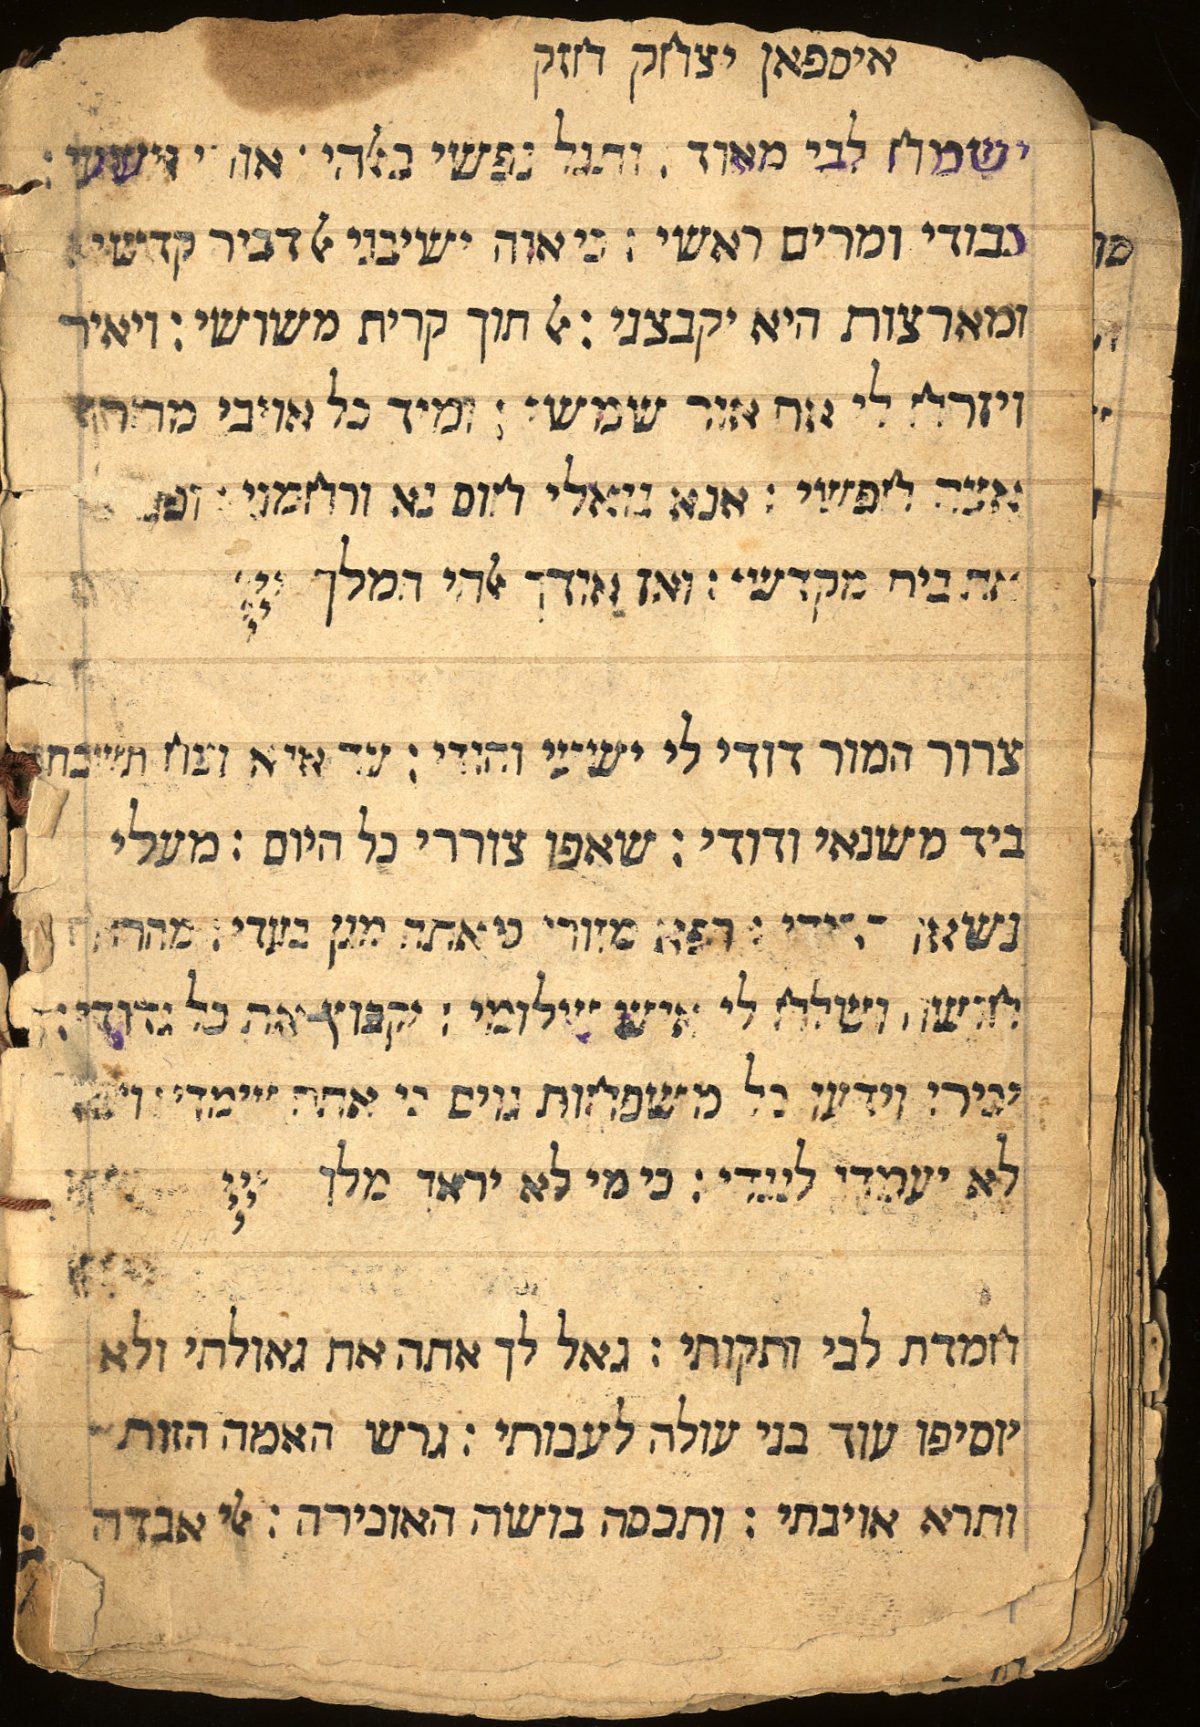 איספאן יצחק חזק
ישמח לבי מאוד : ותגל נפשי באלהי
כבודי ומרים ראשי : כי אוה ישיבני אל דביר קדשי
ומארצות היא יקבצני : אל תוך קרית משושי : ויאיר
ויזרח לי את אור שמשי : ומיד כל אויבי
חפשי : אנא גואלי חוס נא ורחמני
את בית מקדשי : ואז אודך אלהי המלך
צרור המור דודי לי ישיש והודי : עד
ביד משנאי ודודי : שאפו צוררי כל היום : מעלי
נשא : רפא מזורי כי אתה מגן בעדי :
חושה ושלח לי איש שלומי : יקבוץ את כל גדודי :
יכירו וידעו כל משפחות גוים כי אתה
לא יעמדו לנגדי : כי מי לא יראך מלך
חמדת לבי ותקותי : גאל לך אתה את גאולתי ולא
יוסיפו עוד בני עולה לענותי : גרש האמה הזות
ותרא אויבתי : ותכסה בושה האוכירה : אלי אבדה